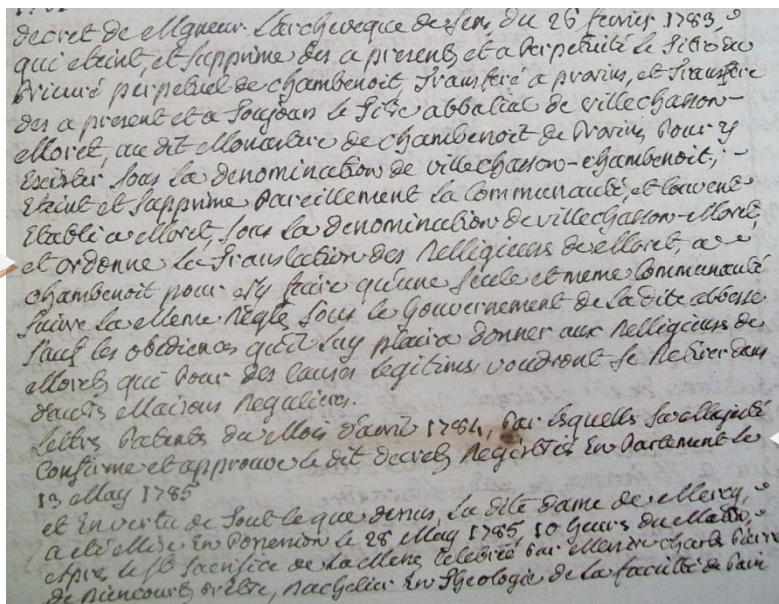 decret de Mgneur Larcheveque de Sens du 26 fevrier 1783,
qui eteint, et supprime des a present, et a Perpetuité le titre du
Prieuré perpetuel de chambenoit, Transferé a provins, et Transfere
des a present et a Toujours le titre abbatial de villechasson-
Moret, au dit Monastere de chambenoit de Provins Pour y
Exister sous la denomination de villechasson-chambenoit;
Eteint et supprime Pareillement la Communauté, et Couvent
Etabli a Moret, sous la denomination de villechasson-Moret,
et ordonne la Translation des Relligieuses de Moret, a
chambenoit pour n'y faire qu'une seule et meme Communauté
suivre la Meme Regle sous le Gouvernement de la dite abbesse
sauf les obediences qu'il luy plaira donner aux Relligieuses de
Moret qui Pour des Causes legitimes voudront se Retirer dans
d'autres Maisons Regulieres.
Lettres Patentes du Mois d'avril 1784, Par lesquelles sa Majesté
Confirme et approuve le dit decret, Registrées En Parlement le
13 May 1785
et En vertu de Tout le que dessus, la dite dame de Mercy,
a eté Mise En Possession le 28 May 1785, 10 heures du Matin,
apres le st sacrifice de la Messe Celebré Par Messire charles Pierre
de Riencourt Prêtre, Bachelier En Theologie de la faculté de Paris